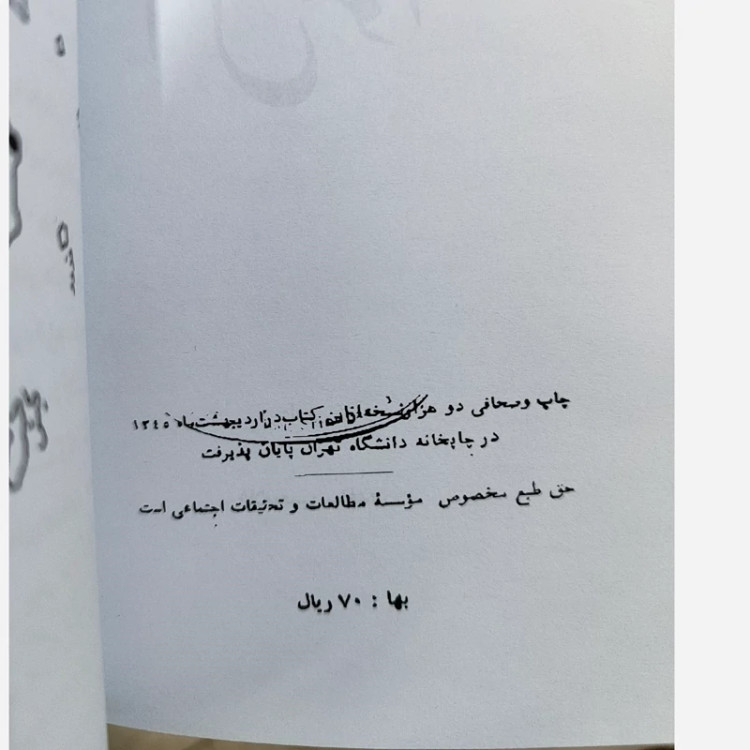 چاپ وصحافی دو هزار نسخه از این کتاب در اردیبهشت ماه ۱۳٤٥
در چاپخانه دانشگاه تهران پایان پذیرفت
حق طبع مخصوص مؤسسهٔ مطالعات و تحقیقات اجتماعی است
بها : ۷۰ ریال